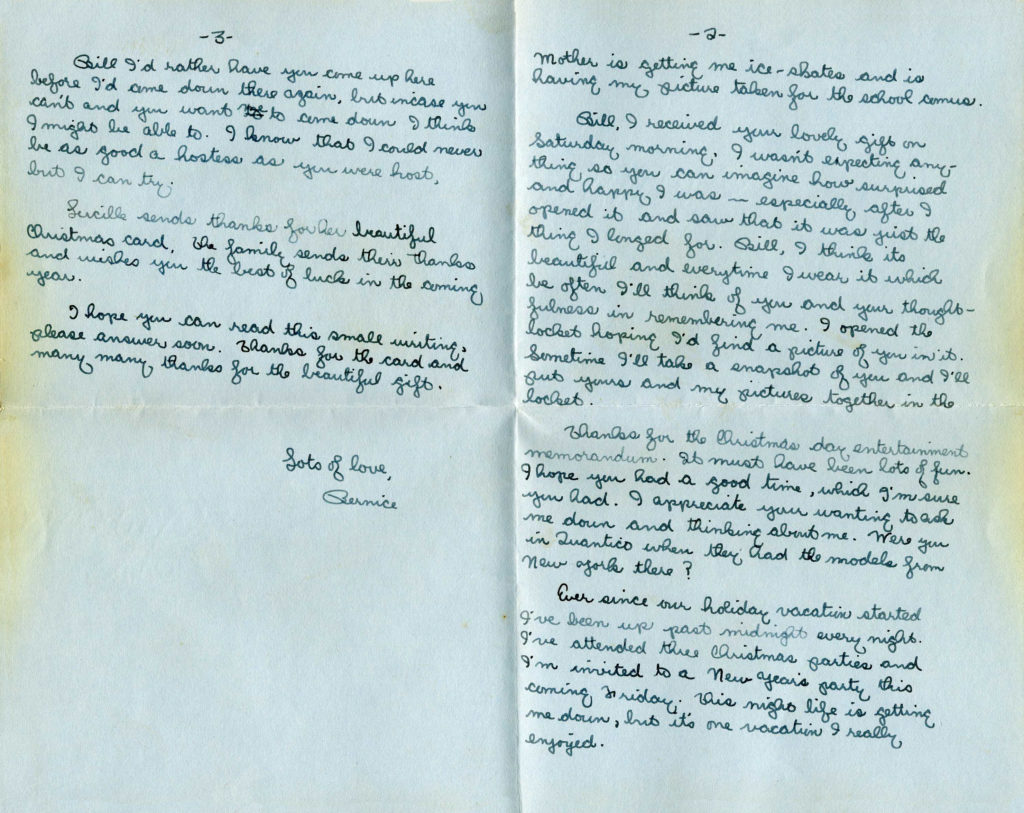 -2-
Mother is getting me ice-skates and is
having my picture taken for the school comus.
Bill, I received your lovely gift on
Saturday morning. I wasn't expecting any-
thing so you can imagine how surprised
and happy I was — especially after I
opened it and saw that it was just the
thing I longed for. Bill, I think its
beautiful and everytime I wear it which
be often I'll think of you and your thought-
fulness in remembering me. I opened the
locket hoping I'd find a picture of you in it.
Sometime I'll take a snapshot of you and I'll
put yours and my pictures together in the
locket.
Thanks for the Christmas day entertainment
memorandum. It must have been lots of fun.
I hope you had a good time, which I'm sure
you had. I appreciate your wanting to ask
me down and thinking about me. Were you
in Quantico when they had the models from
New York there?
Ever since our holiday vacation started
I've been up past midnight every night.
I've attended three Christmas parties and
I'm invited to a New Year's party this
coming Friday. This night life is getting
me down, but it's one vacation I really
enjoyed.
-3-
Bill I'd rather have you come up here
before I'd come down there again, but incase you
can't and you want to come down I think
I might be able to. I know that I could never
be as good a hostess as you were host,
but I can try.
Lucille sends thanks for her beautiful
Christmas card. The family sends their thanks
and wishes you the best of lucks in the coming
year.
I hope you can read this small writing,
please answer soon. Thanks for the card and
many many thanks for the beautiful gift.
Lots of love,
Bernice